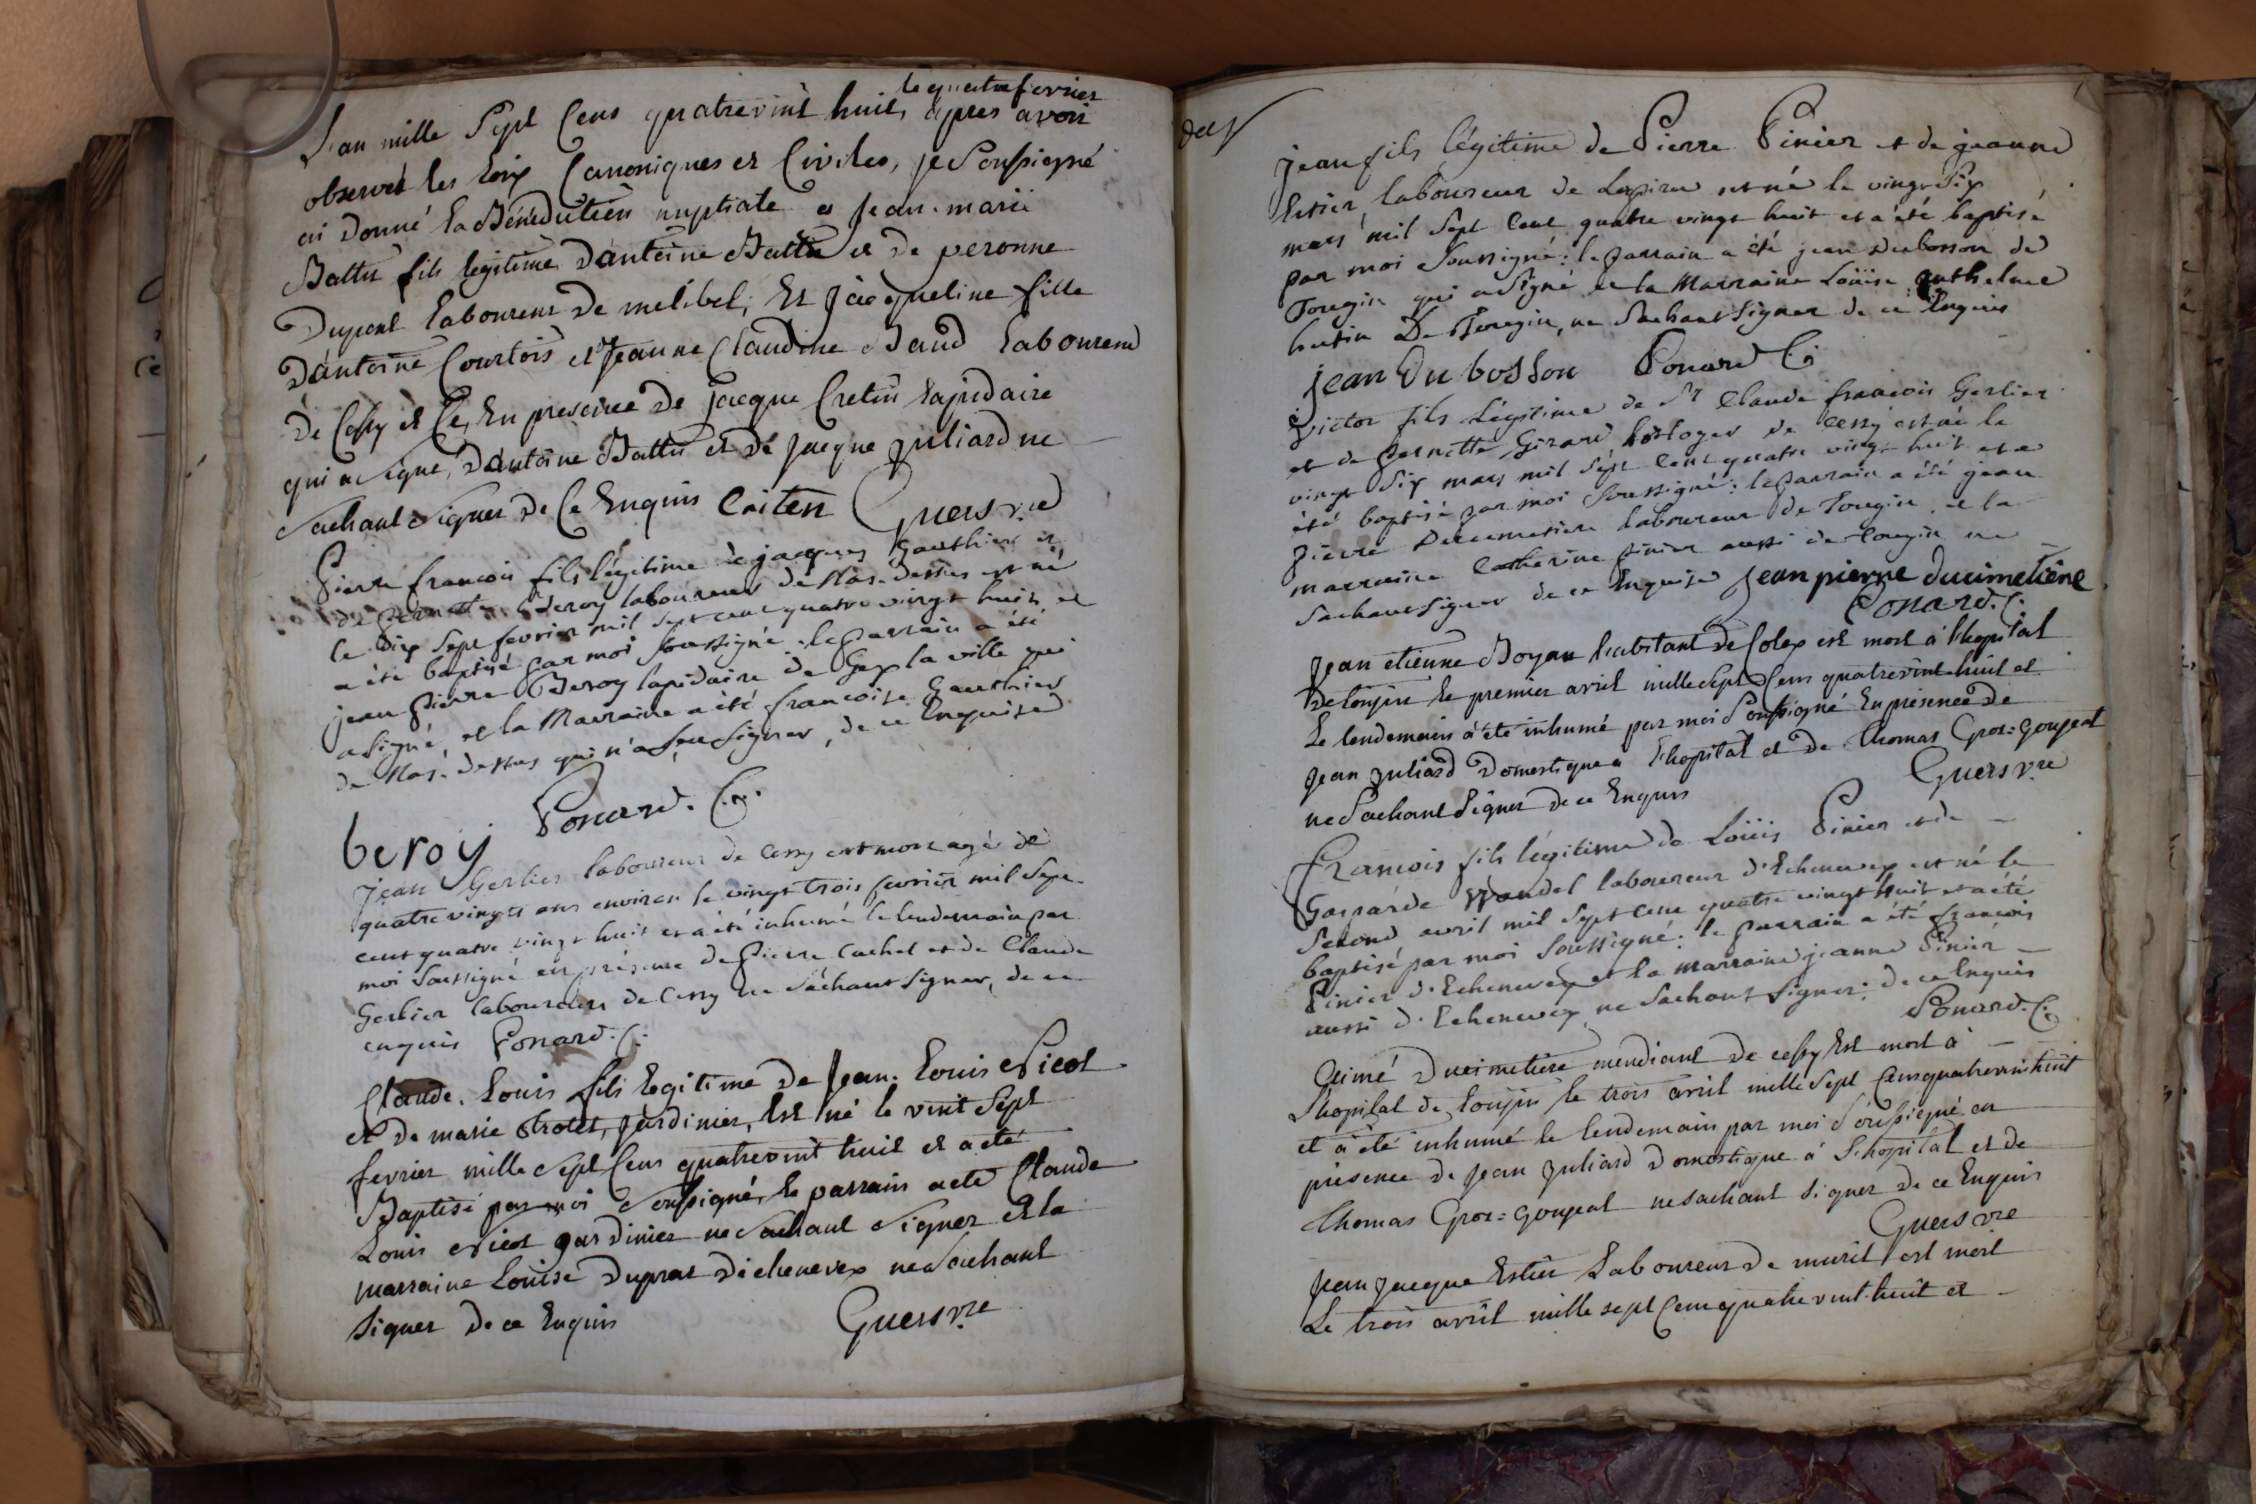 le quatre fevrier
L'an mille Sept Cens quatrevint huit, apres avoir
observé les loix Canoniques et Civiles, je Soussigné
ai Donné la Bénédiction nuptiale a Jean-marie
Battu fils legitime D'antoine Battu et De peronne
Dupont laboureur De melibel, Et Jacqueline fille
D'antoine Courtois et Jeanne Claudine Baud laboureur
De Cessy et Ce, En presence De Jacque Cretin lapidaire
qui a signé, D'antoine Battu et De Jacque Juliard ne
Sachant signer De Ce Enquis Criten Guers vre
Pierre francois fils légitime de jacques Gauthier et
de pernette Beroy laboureur de Mas-dessus est né
le dix sept fevrier mil sept cent quatre vingt huit, et
a été baptisé par moi soussigné. le parrain a été
jean Pierre Beroy lapidaire de Gex la ville qui
a signé, et la Marraine a été francoise Gauthier
de Mas-dessus qui n'a seu signer, de ce Enquise
beroy Ponard. C.
Jean Gerlier laboureur de Cessy est mort agé de
quatre vingts ans environ le vingt trois fevrier mil sept
cent quatre vingt huit et a été inhumé le lendemain par
moi soussigné en présence de Pierre Cachet et de Claude
Gerlier laboureurs de Cessy ne sachant signer, de ce
enquis Ponard. C.
Claude. Louis fils legitime De Jean. Louis Nicot
et De marie trolet, jardinier, Est né le vint Sept
fevrier mille Sept Cens quatrevint huit et a eté
Baptisé par moi Soussigné, le parrain a eté Claude
Louis Nicot jardinier ne Sachant signer et la
marraine Louise Duprat D'echenevex ne Sachant
signer De ce Enquis Guers vre
jean fils légitime de Pierre Pinier et de jeanne
Estier laboureur de est né le vingt six
mars mil sept cent quatre vingt huit et a été baptisé
par moi soussigné: le parrain a été jean Dubosson de
Tougin qui a signé et la Marraine Loüise
hutin De Tougin, ne sachant signer de ce Enquis
jean Du bosson Ponard C.
Victor fils légitime de Sr Claude francois Gerlier
et de pernette Girard horloger de Cessy est né le
vingt six mars mil sept cent quatre vingt huit et a
été baptisé par moi soussigné: le parrain a été jean
pierre Ducimetiere laboureur de Tougin, et la
marraine Catherine pinier aussi de Tougin ne
sachant signer de ce Enquise Jean pierre ducimetiere
Ponard. C.
Jean etienne Boyau habitant De Colex est mort à l'hopital
De toujin le premier avril mille Sept Cens quatrevint huit et
le lendemain a été inhumé par moi Soussigné En présence De
Jean Juliard Domestique a l'hopital et De Thomas Gros=gougeat
ne Sachant signer De ce Enquis Guers vre
Francois fils légitime de Loüis Pinier et de
Gasparde laboureur d'Echenevex est né le
second avril mil sept cent quatre vingt huit et a été
baptisé par moi soussigné: le parrain a été francois
Pinier d'Echenevex et la marraine jeanne Pinier
aussi d'Echenevex ne sachant signer: de ce Enquis
Ponard. C.
Aimé Ducimetiere mendiant De cessy Est mort à
l'hopital de toujin le trois avril mille Sept Cens quatrevint huit
et a été inhumé le lendemain par moi Soussigné en
présence De Jean Juliard Domestique à l'hopital et De
Thomas Gros=gougeat ne sachant signer De ce Enquis
Guers vre
Jean Jacque Estier Laboureur De est mort
Le trois avril mille sept Cens quatrevint. huit et